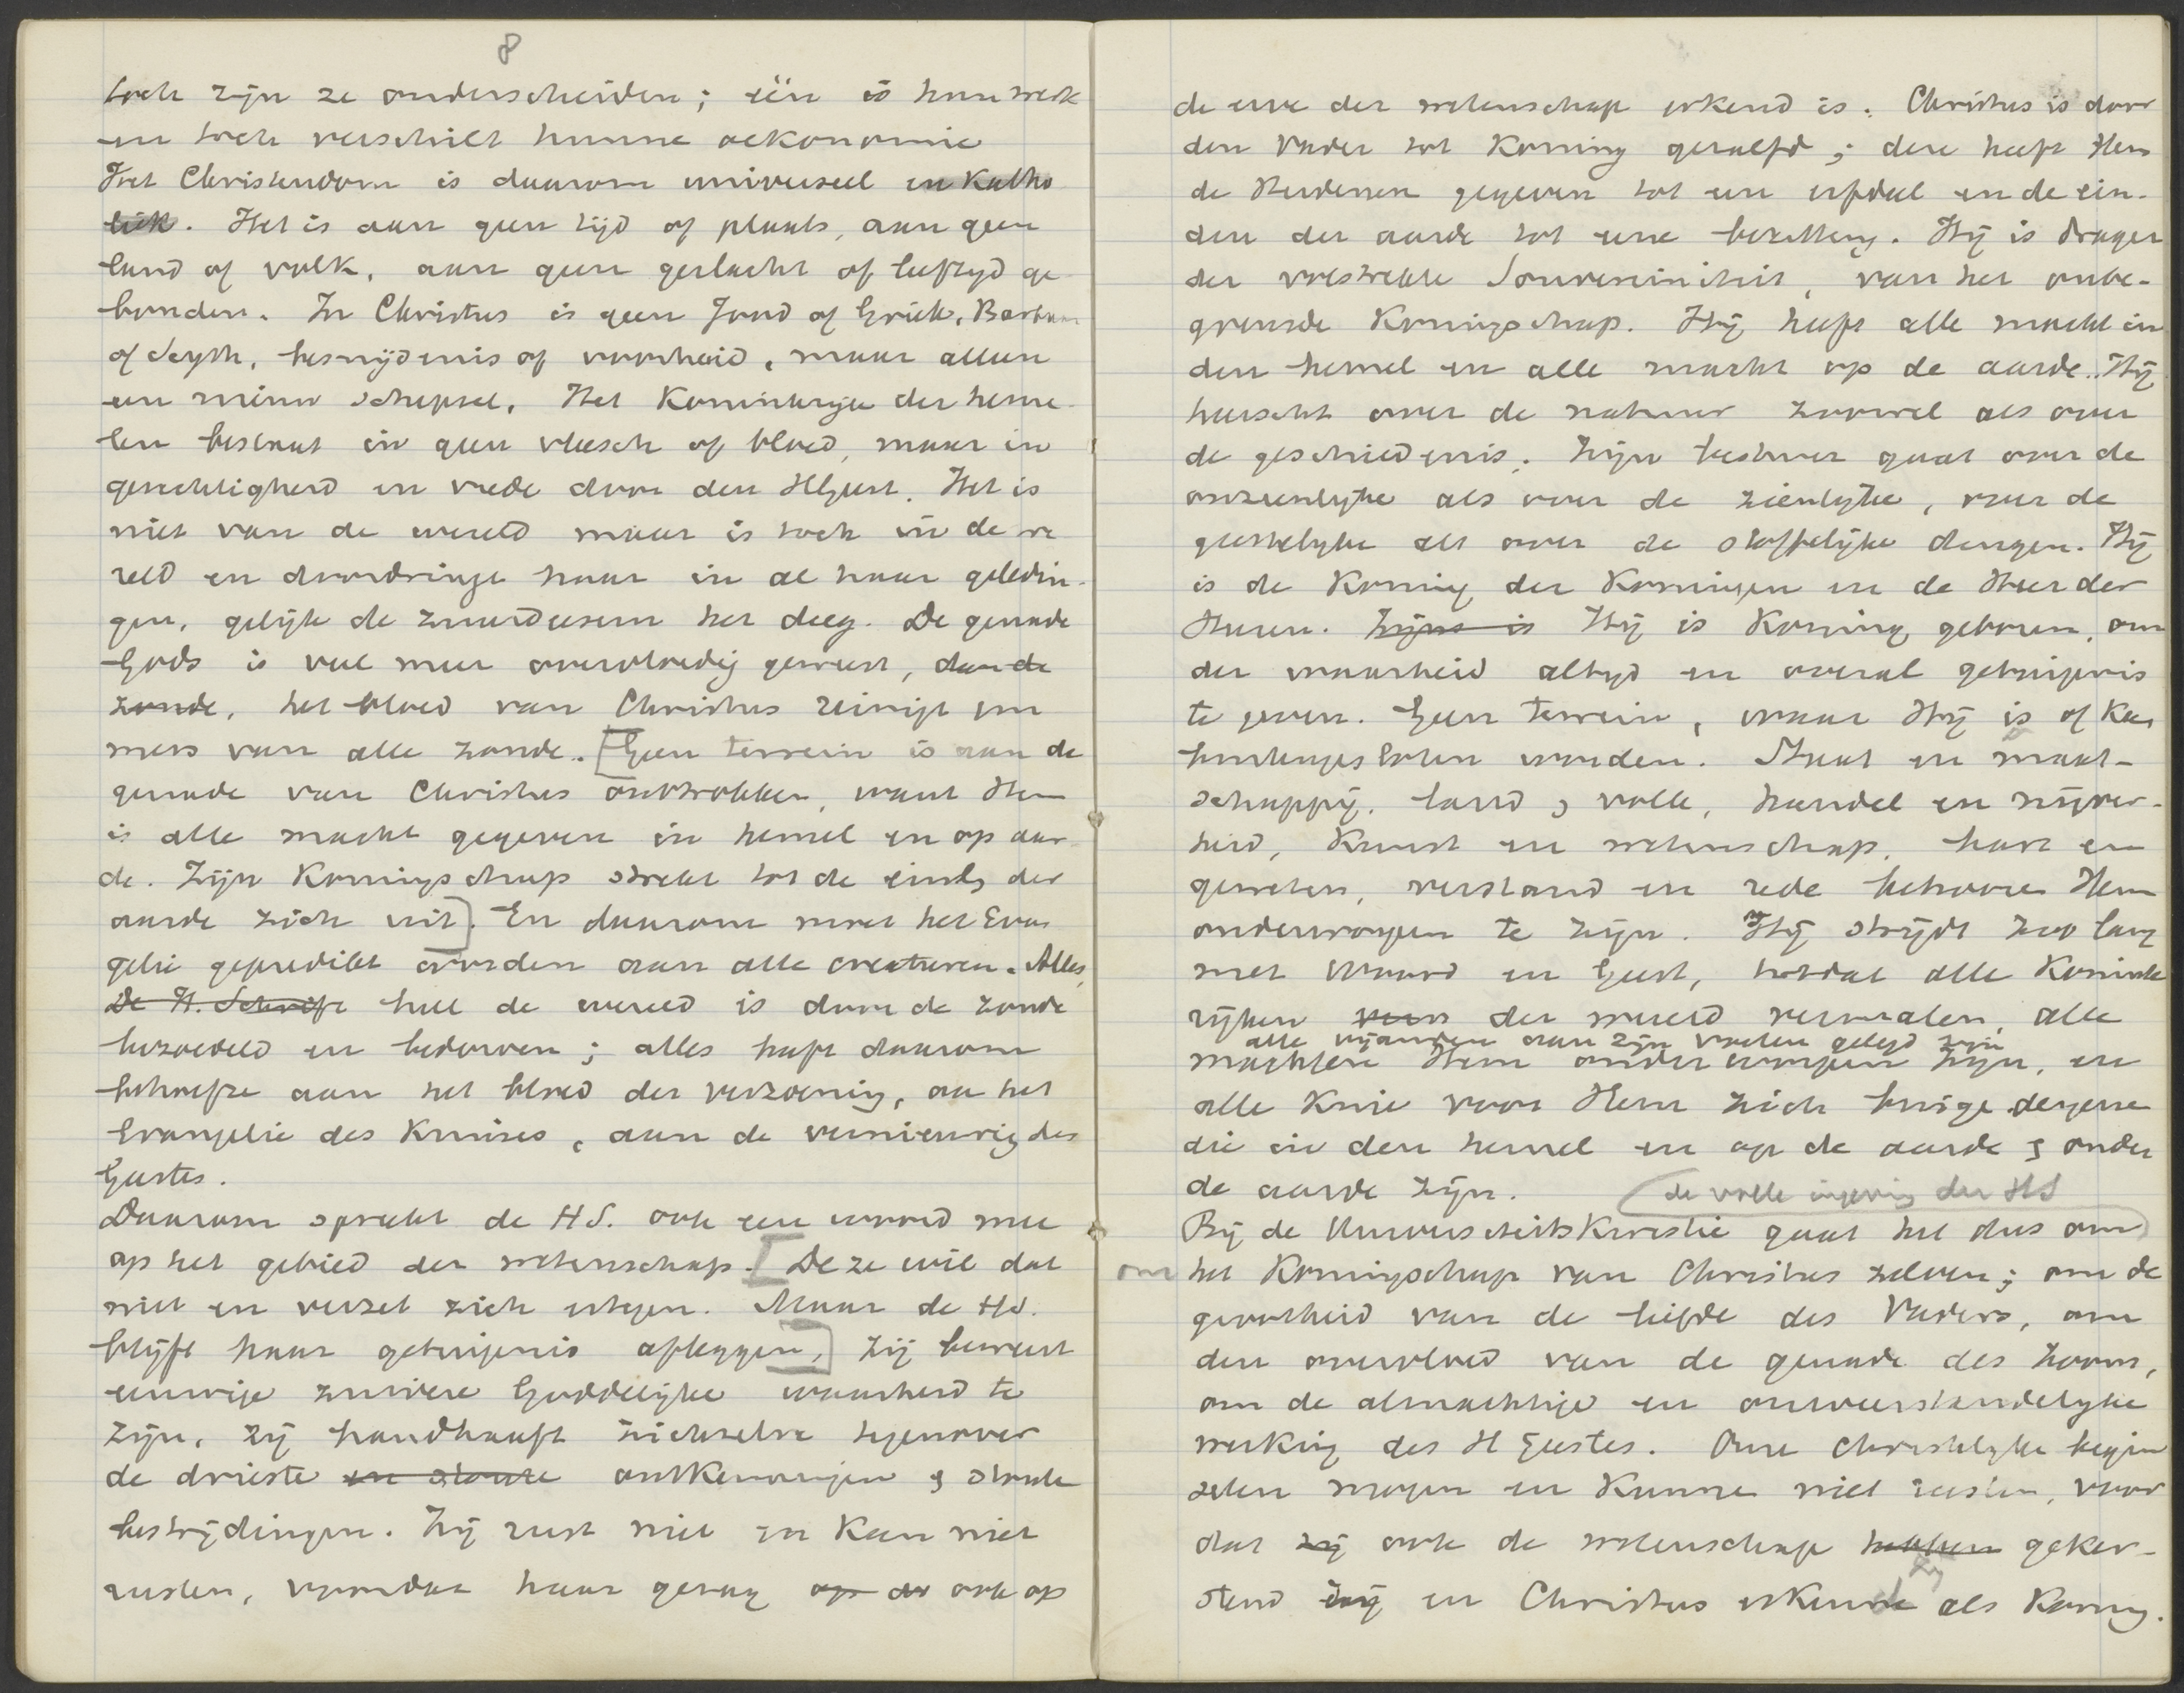 8
toch zijn ze onderscheiden; één is hun werk
en toch verschilt hunne oekonomie
Het Christendom is daarom universeel en Katho
liek. Het is aan geen tijd of plaats, aan geen
land of volk, aan geen geslacht of leeftyd ge
bonden. In Christus is geen Jood of Griek, Barbaar
of Scyth, besnijdenis of voorheid, maar alleen
een nieuw schepsel. Het Koninkrijk der heme
len bestaat in geen vleesch of bloed, maar in
gerechtigheid en vrede door den HGeest. Het is
niet van de wereld maar is toch in de we
reld en doordringt haar in al haar geledin-
gen, gelijk de zuurdeesem het deeg. De genade
Gods is veel meer overvloedig geweest, dan de
zonde, het bloed van Christus reinigt im
mers van alle zonde. [Geen terrein is aan de
genade van Christus onttrokken, want Hem
is alle macht gegeven in hemel en op aar
de. Zijn Koningschap strekt tot de einds der
aarde zich uit]. En daarom moet het Evan
gelie gepredikt worden aan alle creaturen. Alles,
De H. Schrift heel de wereld is door de zonde
bezoedeld en bedorven; alles heeft daarom
behoefte aan het bloed der verzoening, aan het
Evangelie des Kruises, aan de vernieuwing des
Geestes.
Daarom spreekt de HS. ook een woord mee
op het gebied der wetenschap. [Deze wil dat
niet en verzet zich ertegen. Maar de HS.
blijft haar getuigenis afleggen,] zij beweert
eenige zuivere Goddelijke waarheid te
zijn, zij handhaaft zichzelve tegenover
de drieste en stoute ontkenningen & stoute
bestrijdingen. Zij rust niet en kan niet
rusten, voordat haar gezag op de ook op
de erve der wetenschap erkend is. Christus is door
den Vader tot Koning gezalfd; deze heeft Hem
de Heidenen gegeven tot een erfdeel en de ein-
den der aarde tot eene bezitting. Hij is drager
der volstrekte Souvereiniteit, van het onbe-
grensde Koningschap. Hij heeft alle macht in
den hemel en alle macht op de aarde. Hij
heerscht over de natuur zoowel als over
de geschiedenis. Zijn bestuur gaat over de
onzienlyke als over de zienlyke, over de
geestelyke als over de stoffelijke dingen. Hij
is de Koning der Koningen en de Heer der
Heeren. Zijns is Hij is Koning geboren, om
der waarheid altyd en overal getuigenis
te geven. Geen terrein, waar Hij is of kan
buitengesloten worden. Staat en maat-
schappij, land & volk, handel en nijver-
heid, Kunst en wetenschap, hart en
geweten, verstand en rede behooren Hem
onderworpen te zijn. Hij strijdt zoo lang
met Woord en Geest, totdat alle Konink
rijken van der wereld vermalen, alle
alle vijanden aan zijn voeten gelegd zijn
machten Hem onderworpen zijn, en
alle Knie voor Hem zich buige dergene
die in den hemel en op de aarde & onder
de aarde zijn.
de volle ingeving der HS
Bij de Universiteitskwestie gaat het dus om
om het Koningschap van Christus zelven; om de
grootheid van de liefde des Vaders, om
den overvloed van de genade des Zoons,
om de almachtige en onweerstandelyke
werking des H Geestes. Onze Christelyke begin
selen mogen en Kunnen niet rusten, voor
dat zij ook de wetenschap hebben geker-
stend zij en Christus erkenne als Koning.